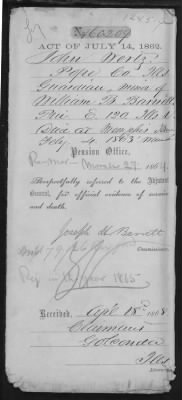 No 60209
ACT OF JULY 14, 1862.
John West
Pope Co. Ills
Guardian, minor of
William B. Barrett
Pri E. 120 Ills V
Died at Memphis
July 4 1863
Pension Office,
March 27 186
Respectfully referred to the Adjutant
General, for official evidence of service
and death.
Joseph H Barrett
Commissioner.
1865
Received, Apl 18th 1865
Claimant
Golconda
Ills